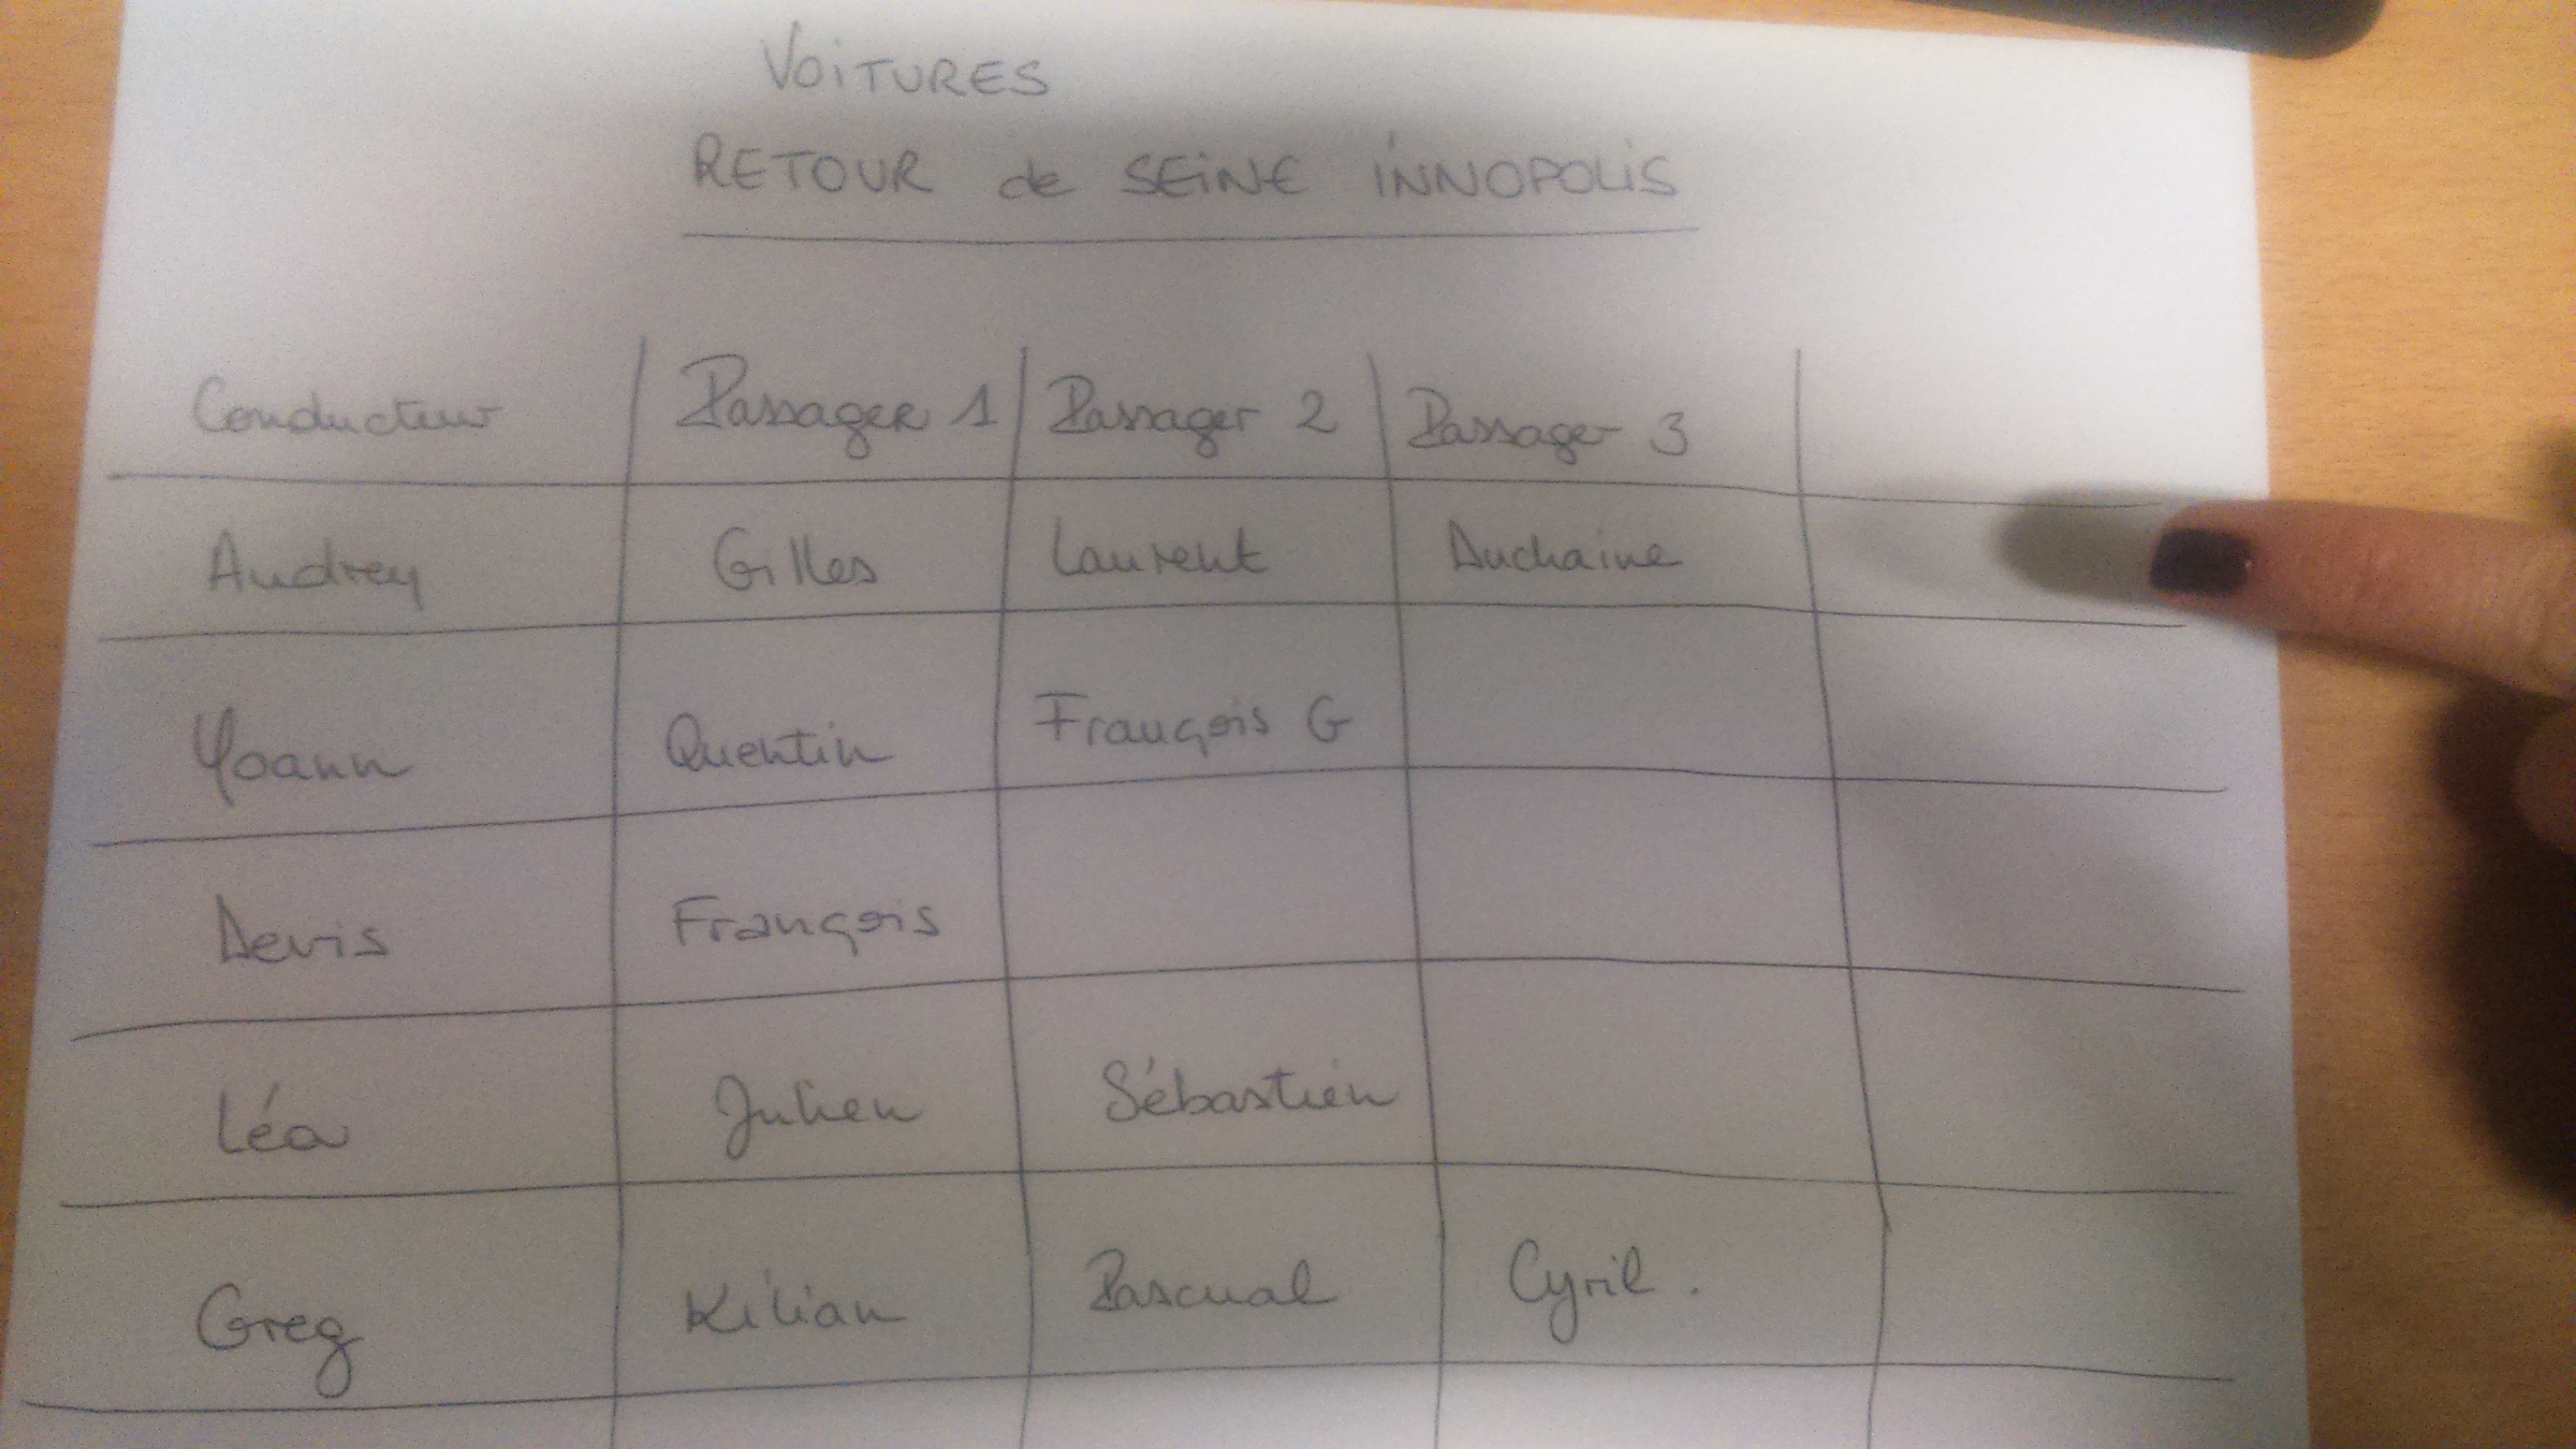 VOITURES
RETOUR de SEINE INNOPOLIS
Conducteur Passager 1 Passager 2 Passager 3
Audrey Gilles Laurent Duchaine
Yoann Quentin François G
Devis François
Léa Julien Sébastien
Greg Kilian Pascual Cyril.